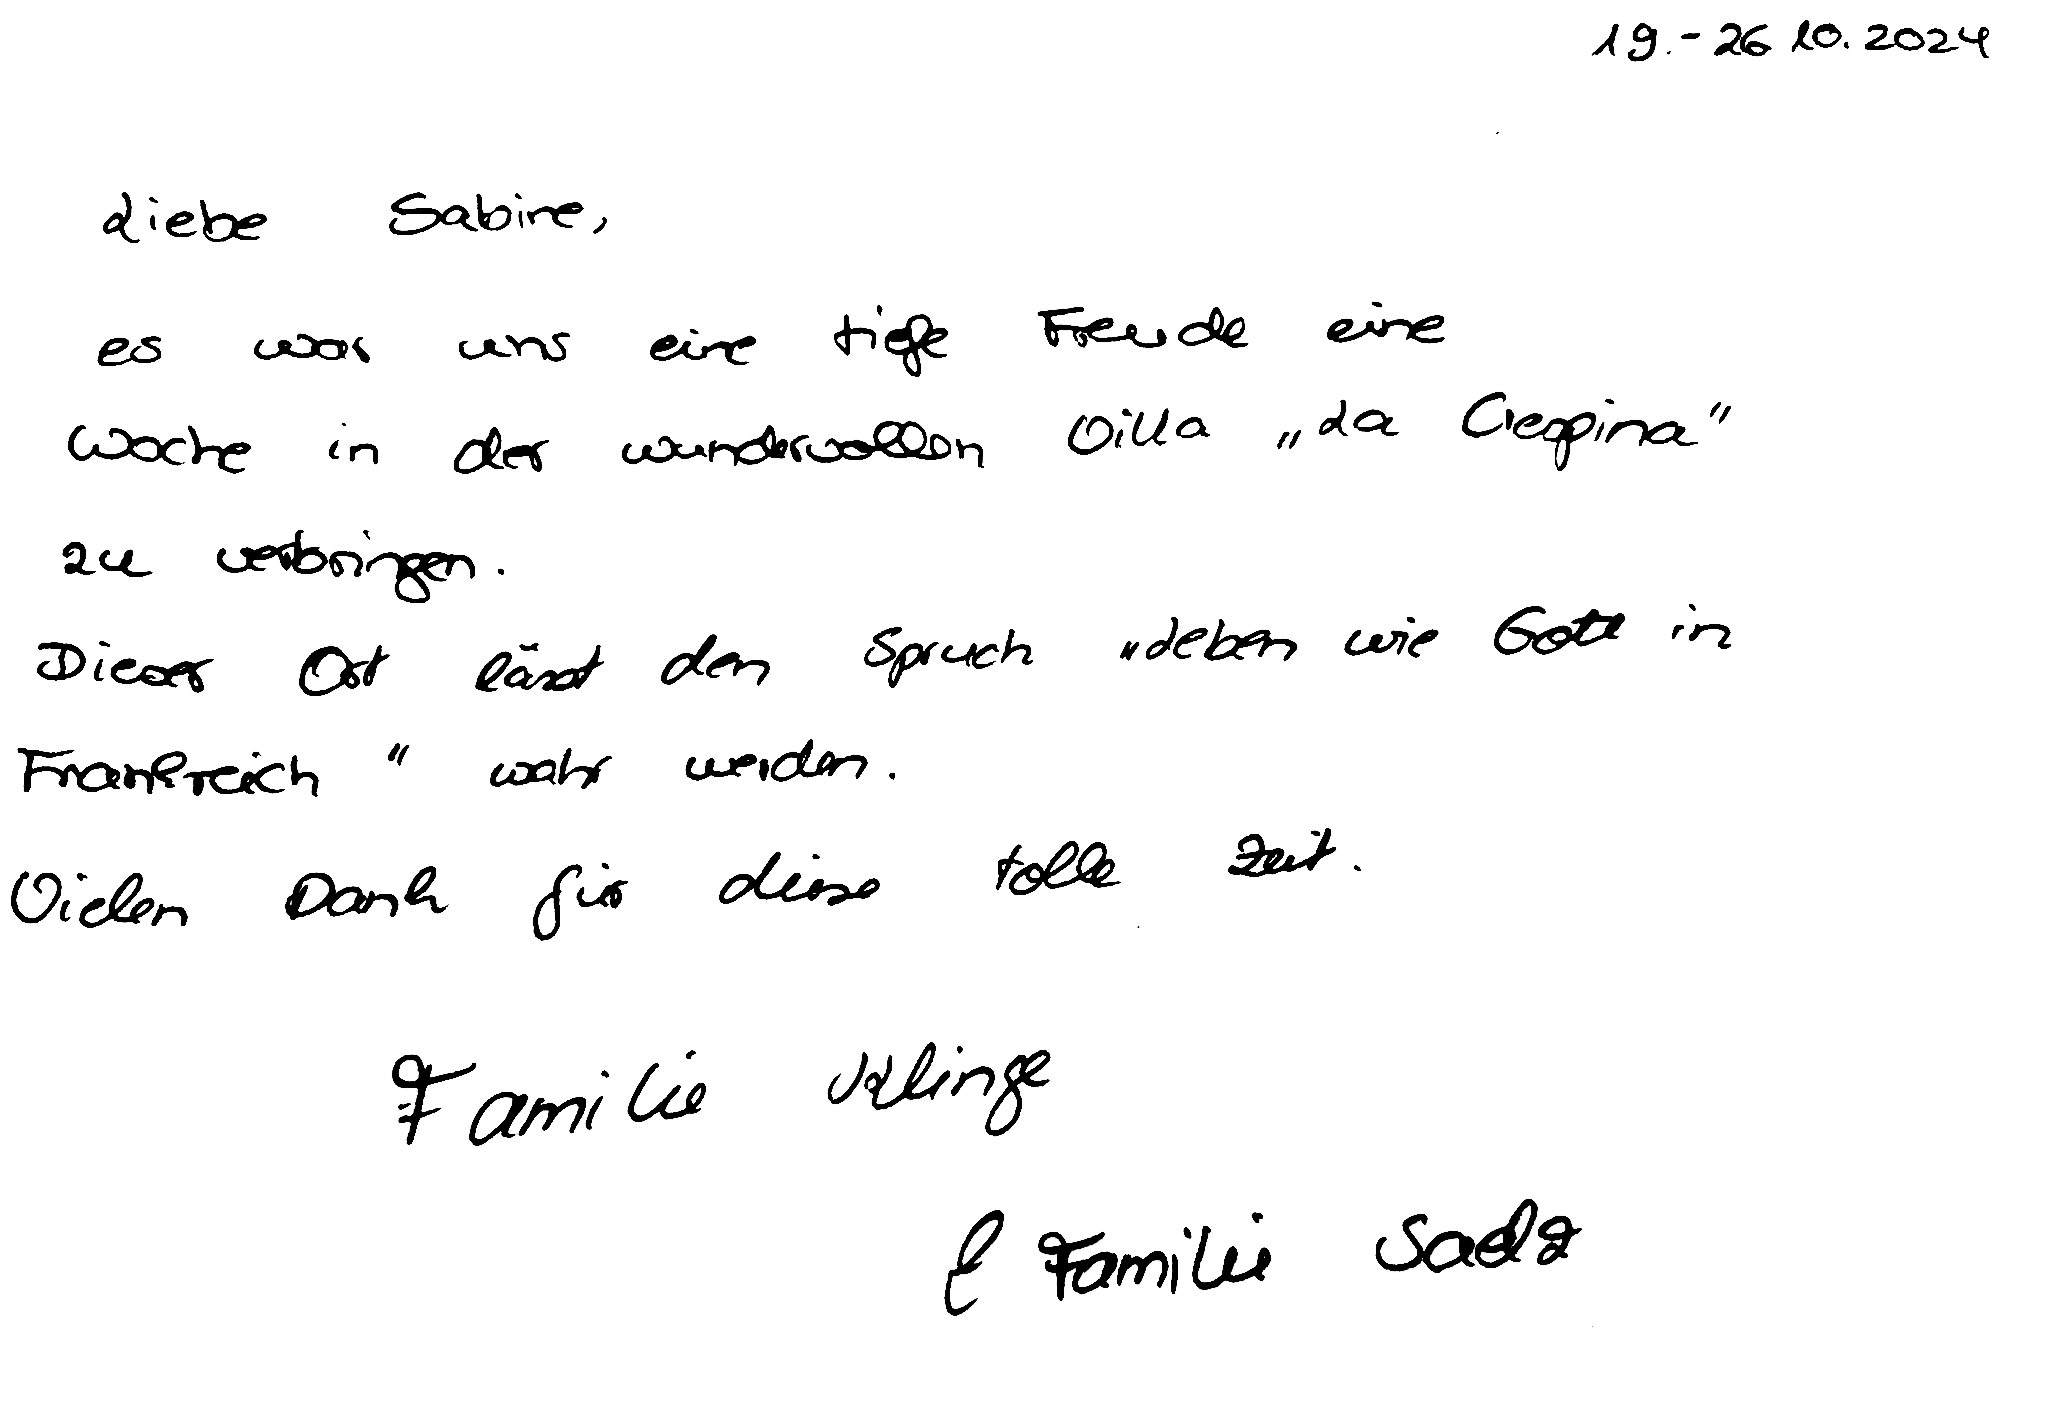 19.-26 10.2024
Liebe Sabine,
es war uns eine tiefe Freude eine
Woche in der wundervollen Villa „La
zu verbringen.
Dieser Ort lässt den Spruch „Leben wie Gott in
Frankreich" wahr werden.
Vielen Dank für diese tolle Zeit.
Familie Klinge
& Familie